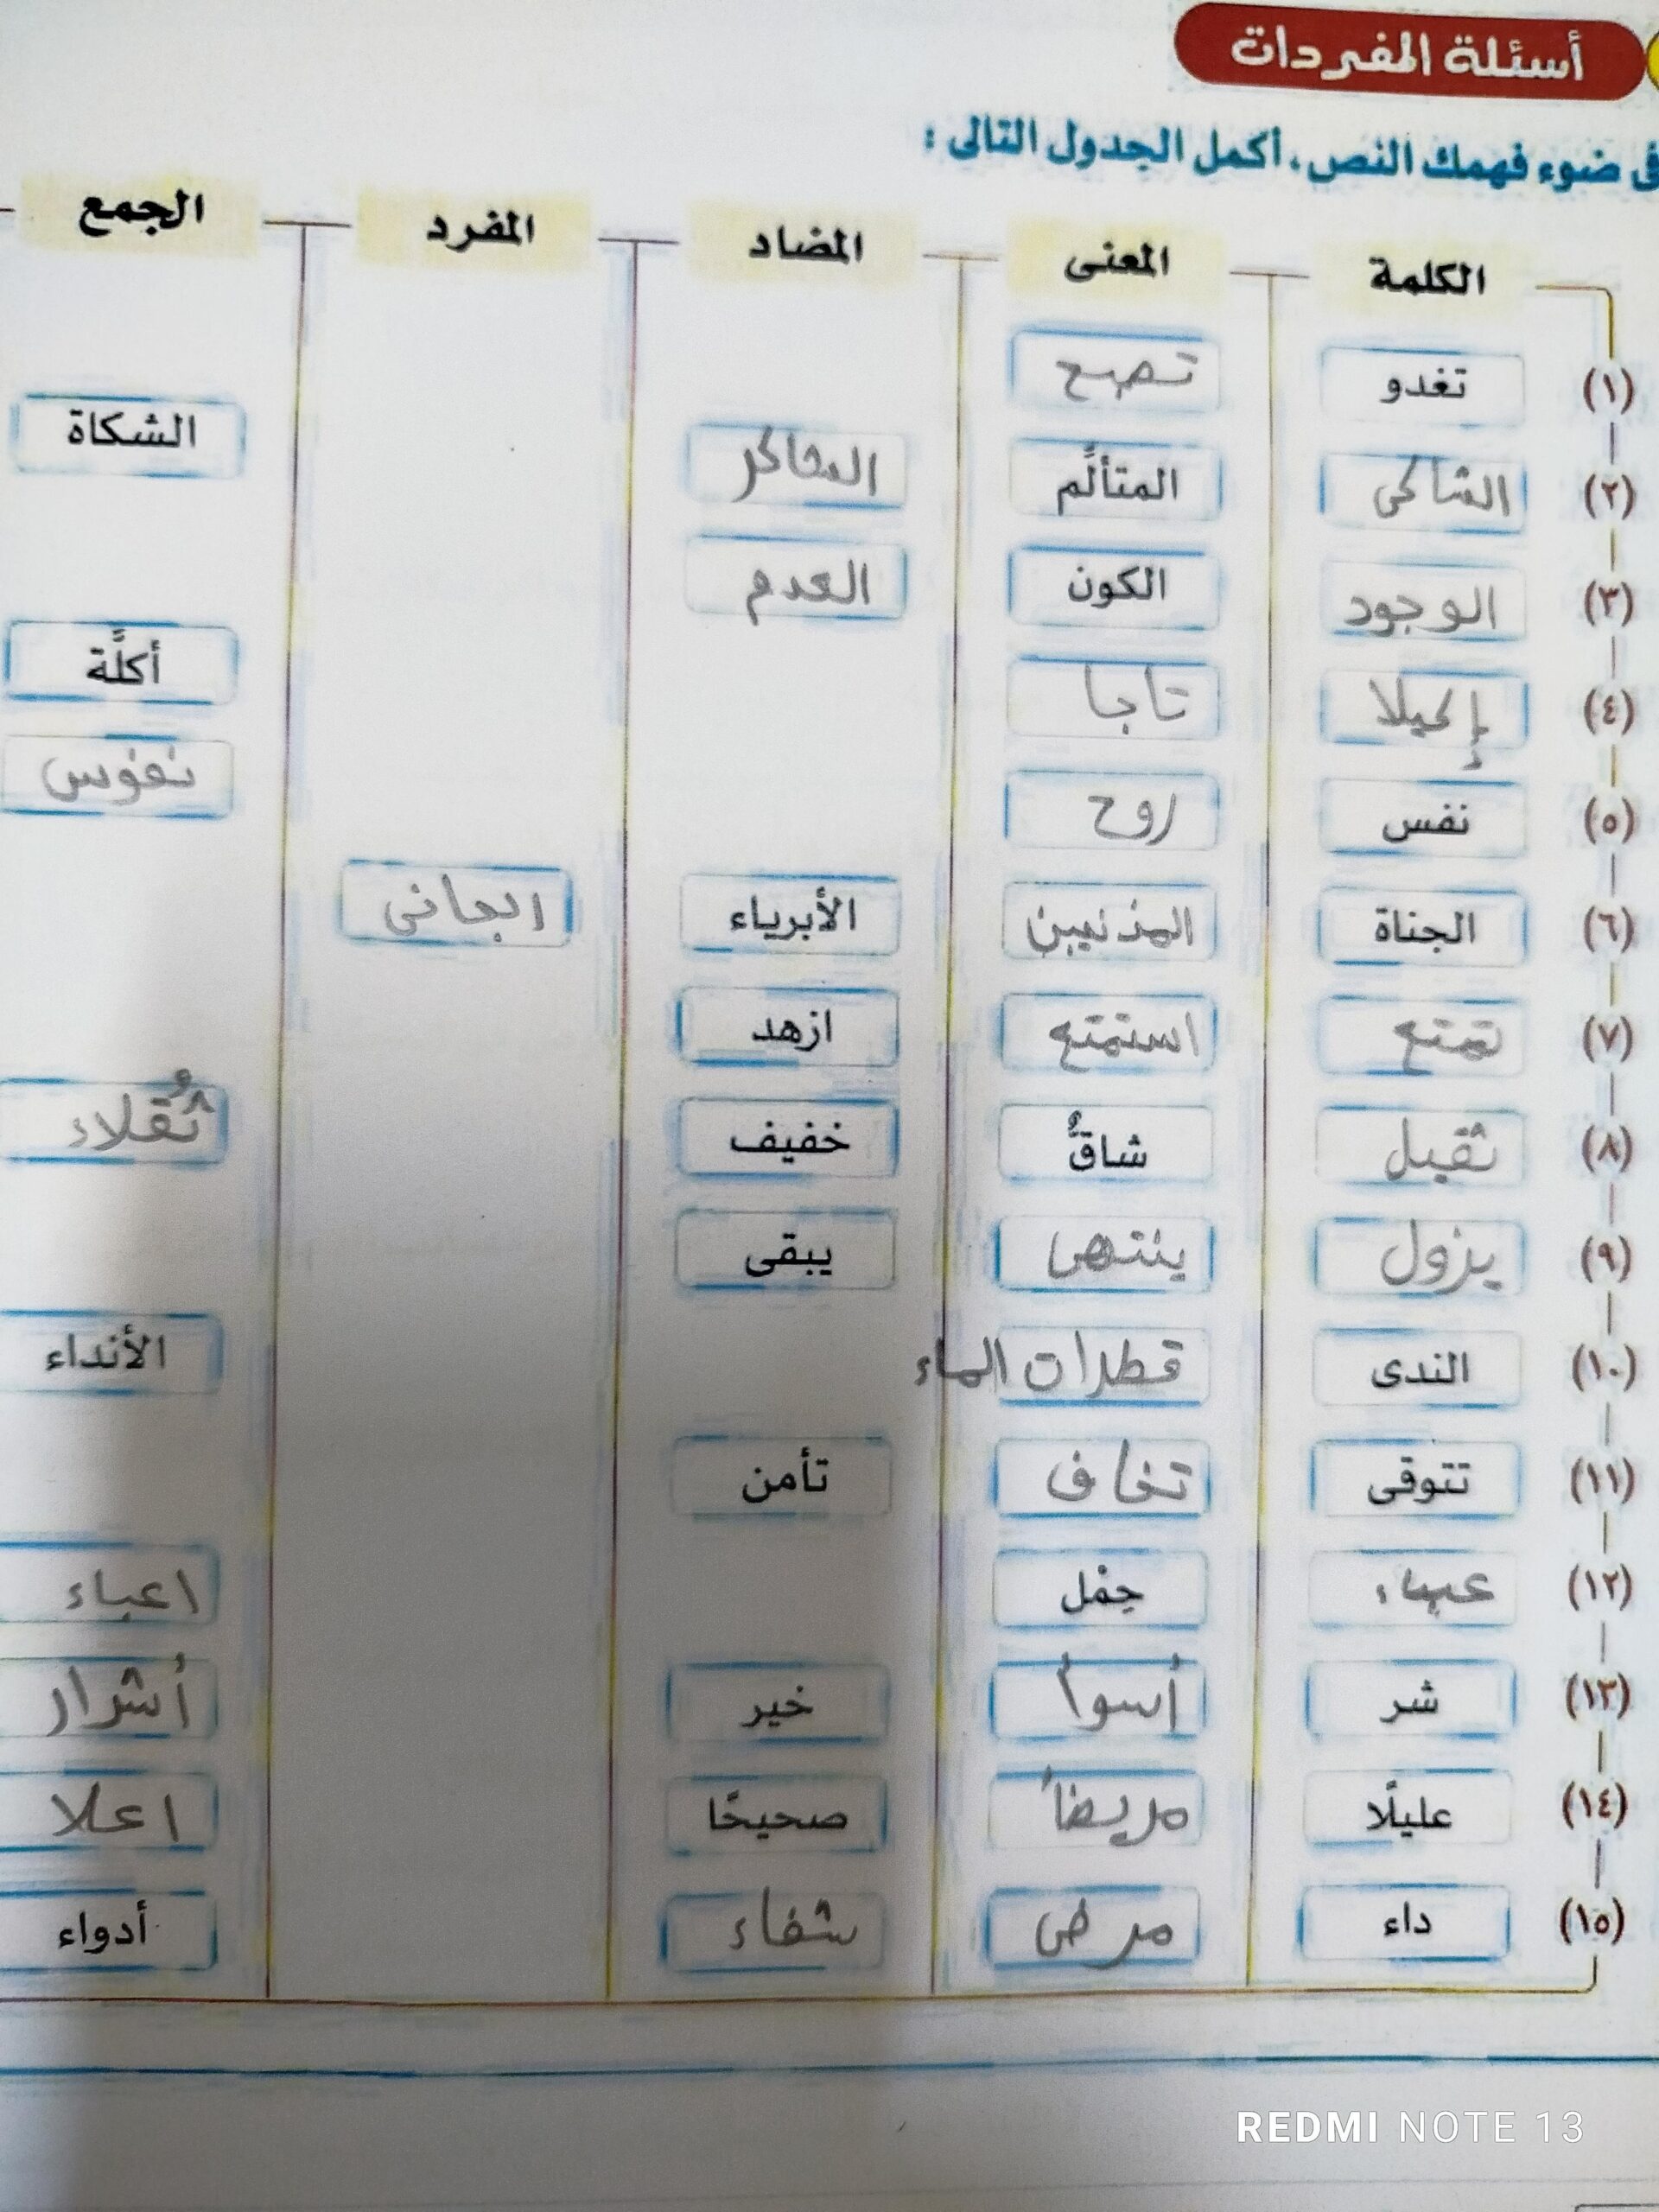 أسئلة المفردات
فى ضوء فهمك النص، أكمل الجدول التالى :
الكلمة المعنى المضاد المفرد الجمع
(١) تغدو تصبح
(٢) الشاكى المتألِّم الشاكر الشكاة
(٣) الوجود الكون العدم
(٤) إكليلا تاجا أكلَّة
(٥) نفس روح نفوس
(٦) الجناة المذنبين الأبرياء الجانى
(٧) تمتع استمتع ازهد
(٨) ثقيل شاقٌّ خفيف ثُقلاء
(٩) يزول ينتهى يبقى
(١٠) الندى قطرات الماء الأنداء
(١١) تتوقى تخاف تأمن
(١٢) عبء حِمْل اعباء
(١٣) شر أسوأ خير أشرار
(١٤) عليلًا مريضاً صحيحًا اعلا
(١٥) داء مرض شفاء أدواء
REDMI NOTE 13